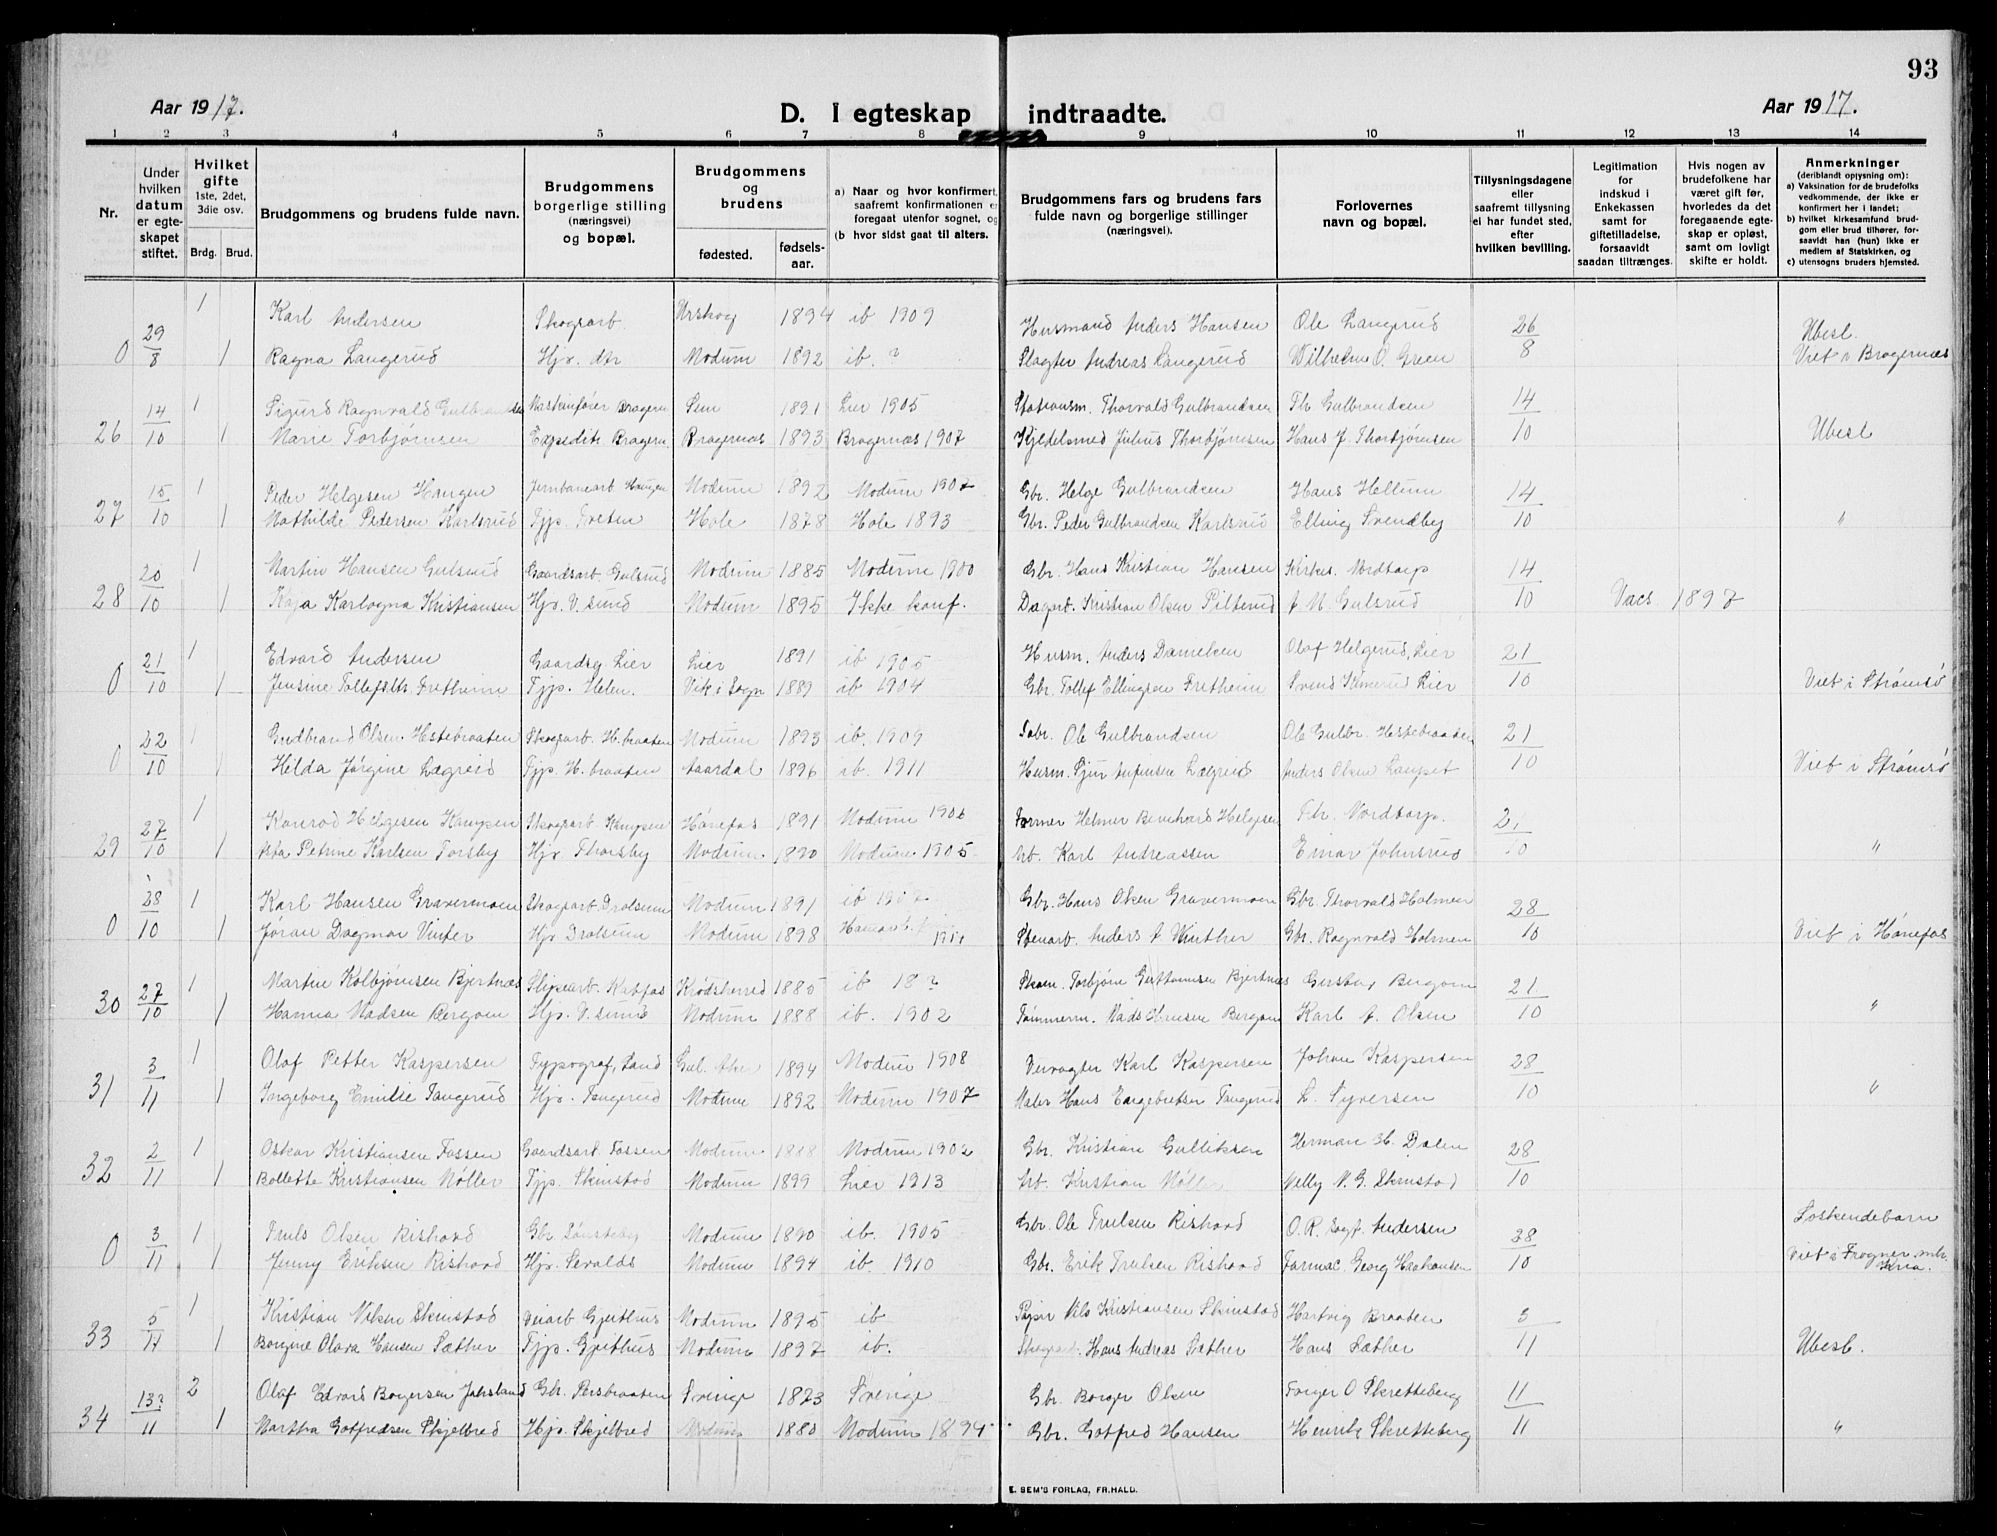 93
Aar 1917.
D. I egteskap indtraadte.
Aar 1917.
1 2 3 4 5 6 7 8 9 10 11 12 13 14
Nr.
Under hvilken datum er egteskapet stiftet.
Hvilket gifte 1ste, 2det, 3die osv.
Brdg. Brud.
Brudgommens og brudens fulde navn.
Brudgommens borgerlige stilling (næringsvei) og bopæl.
Brudgommens og brudens
fødested.
fødselsaar.
a) Naar og hvor konfirmert, saafremt konfirmationen er foregaat utenfor sognet, og
(b hvor sidst gaat til alters.
Brudgommens fars og brudens fars fulde navn og borgerlige stillinger (næringsvei).
Forlovernes navn og bopæl.
Tillysningsdagene eller saafremt tillysning ei har fundet sted, efter hvilken bevilling.
Legitimation for indskud i Enkekassen samt for giftetilladelse, forsaavidt saadan tiltrænges.
Hvis nogen av brudefolkene har været gift før, hvorledes da det foregaaende egteskap er opløst, samt om lovligt skifte er holdt.
Anmerkninger (deriblandt opjysning om):
a) Vaksination for de brudefolks vedkommende, der ikke er konfirmert her i landet;
b) hvilket kirkesamfund brudgom eller brud tilhører, forsaavidt han (hun) ikke er medlem af Statskirken, og
c) utensogns bruders hjemsted.
0 29/8 1 Karl Andersen Skogsarb. Urskog 1894 ib 1909 Husmand Anders Hansen Ole Langerud 26/8 Ubesl.
1 Ragna Langerud Hjv. dtr Modum 1892 ib. ? Slagter Andreas Langerud Wilhelm O. Green Viet i Bragernæs
26 14/10 1 Sigurd Ragnvald Gulbrandsen Maskinfører Bragern Sem 1891 Lier 1905 Stationsm. Thorvald Gulbrandsen Th Gulbrandsen 14/10
1 Marie Torbjørnsen Expeditr. Bragern. Bragernæs 1893 Bragernæs 1907 Kjedelsmed Julius Thorbjørnsen Hans J. Thorbjørnsen Ubesl
27 15/10 1 Peder Helgesen Haugen Jernbanearb. Haugen Modum 1892 Modum 1907 Gbr. Helge Gulbrandsen Hans Hellum 14/10
1 Mathilde Pedersen Karlsrud Tjp. Treten Hole 1878 Hole 1893 Gbr. Peder Gulbrandsen Karlsrud Elling Svendby "
28 20/10 1 Martin Hansen Gulsrud Gaardsarb. Gulsrud Modum 1885 Modum 1900 Gbr. Hans Kristian Hansen Kirkes. Nordtorp 14/10
1 Kaja Karlogna Kristiansen Hjv. V. sund Modum 1895 Ikke konf. Dagarb. Kristian Olsen Pilterud A. M. Gulsrud Vacs 1897
0 21/10 1 Edvard Andersen Gaardsg Lier Lier 1891 ib 1905 Husm. Anders Danielsen Olaf Helgerud, Lier 21/10
1 Jensine Tollefsdtr Fretheim Tjp. Helen. Vik i Sogn 1889 ib 1904 Gbr. Tollef Ellingsen Fretheim Svend Kimerud Lier Viet i Strømsø
0 22/10 1 Gudbrand Olsen Hstebraaten Skogsarb. H. braaten Modum 1893 ib. 1909 Ole Gulbrandsen Ole Gulbr Hestebraaten 21/10
1 Hilda Jørgine Lægreid Tjp. H. braaten Aardal 1896 ib. 1911 Husm. Sjur Lægreid Anders Olsen Viet i Strømsø
29 27/10 1 Konrad Helgesen Kampen Skogsarb. Kampen Hønefos 1891 Modum 1906 Former Helmer Bernhard Helgesen Th. Nordtorp. 21/10
1 Petrine Karlsen Torsby Hjv Thorsby Modum 1890 Modum 1905 Arb. Karl Andreassen Einar Johnsrud "
0 28/10 1 Karl Hansen Gravermoen Skogsarb. Dralsum Modum 1891 ib 1907 Gbr. Hans Olsen Gravermoen Gbr. Thorvald Holmen 28/10
1 Jøran Dagmar Vinter Hjv Dralsum Modum 1898 Stenarb. Anders A Winther Gbr. Ragnvald Holmen Viet i Hønefos
30 27/10 1 Martin Kolbjørnsen Bjertnæs Slipearb. Katfos Krødsherred 1885 ib 18? Torbjørn Guttormsen Bjertnæs Gustav Bergom 21/10
1 Hanna Madsen Bergom Hjv. V. sund Modum 1888 ib. 1902 Tømmerm. Mads Hansen Bergom Karl A. Olsen "
31 3/11 1 Olaf Petter Kaspersen Typograf, Sand Gul. Aker 1894 Modum 1908 Veivogter Karl Kaspersen Johan Kaspersen 28/10
1 Ingeborg Emilie Tangerud Hjv. Tangerud Modum 1892 Modum 1907 Maler Hans Engebretsen Tangerud L. Syversen "
32 2/11 1 Oskar Kristiansen Fossen Gaardsarb Fossen Modum 1888 Modum 1902 Gbr. Kristian Gulliksen Herman H. Dalen 28/10
1 Bollette Kristiansen Møller Tjp. Skinstad Modum 1899 Lier 1913 Arb. Kristian Møller Nelly N. G. Skinstad
0 3/11 1 Truls Olsen Rishovd Gbr. Sønsteby Modum 1890 ib. 1905 Gbr. Ole Trulsen Rishovd O. R. Andersen 28/10 Søskendebarn
1 Jenny Eriksen Rishovd Hjv. Sevalds Modum 1894 ib. 1910 Gbr. Erik Trulsen Rishovd Farmac. Georg Haakonsen Viet i Frogner mh. Kria.
33 5/11 1 Kristian Nilsen Skinstad Veiarb Gjethus Modum 1895 ib Nils Kristiansen Skinstad Hartvig Braaten 3/11
1 Borgine Olava Hansen Sæther Tjp. Gjithus Modum 1897 ib. Skogsarb. Hans Andreas Sæther Hans Sæther Ubesl.
34 13?/11 2 Olaf Edvard Borgersen Jahsland Gbr. Persbraaten Sverige 1873 Sverige Gbr Borger Olsen Torger O Skretteberg 11/11
1 Martha Gotfredsen Skjelbred Hjv. Skjelbred Modum 1880 Modum 1894 Gbr. Gotfred Hansen Henrik Skretteberg "
E. SEM'S FORLAG, FR.HALD.